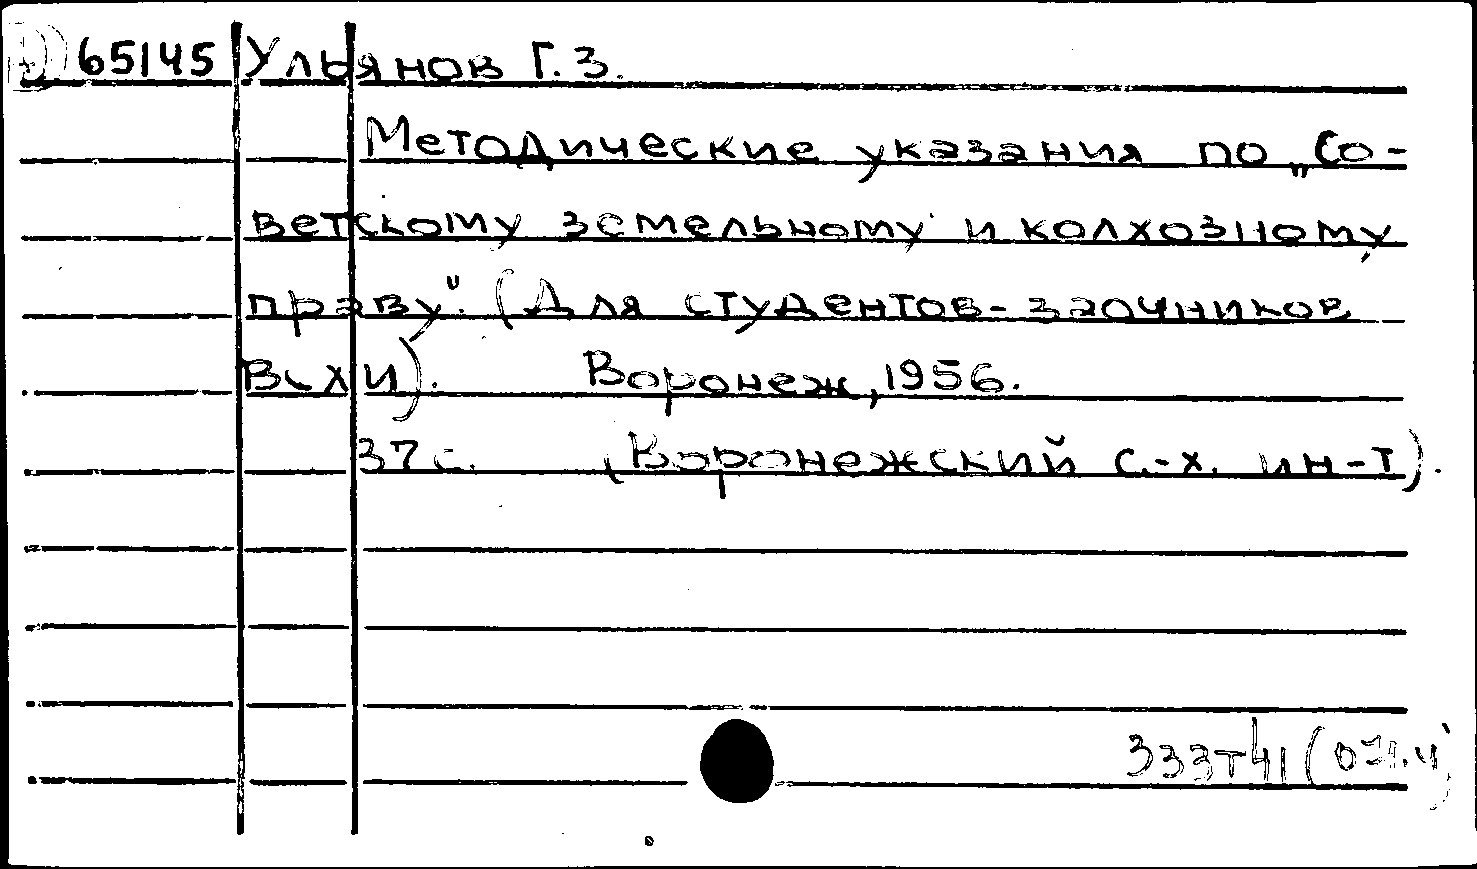 65145 Ульянов Г. З.
Методические указания по „Со-
ветскому земельному и колхозному
праву". (Для студентов-заочников
ВСХИ). Воронеж, 1956.
37 с. (Воронежский с.-х. ин-т).
333т41(071.4)